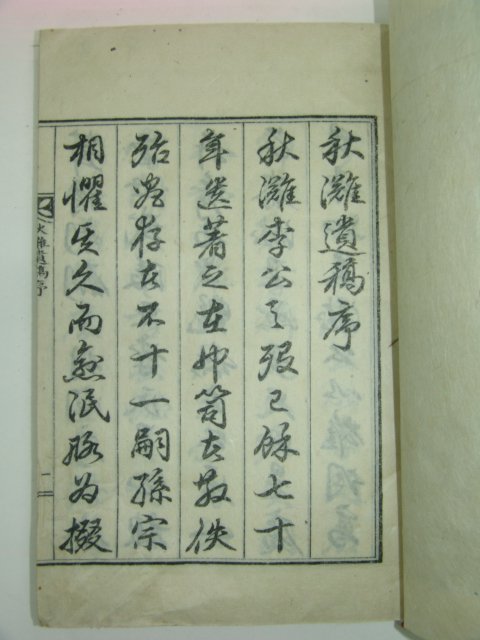 秋灘遺稿序
秋灘李公之歿已餘七十
年遺著之在巾笥者散佚
殆盡存者不十一嗣孫宗
相懼其久而愈泯將為掇
秋灘遺稿序
一